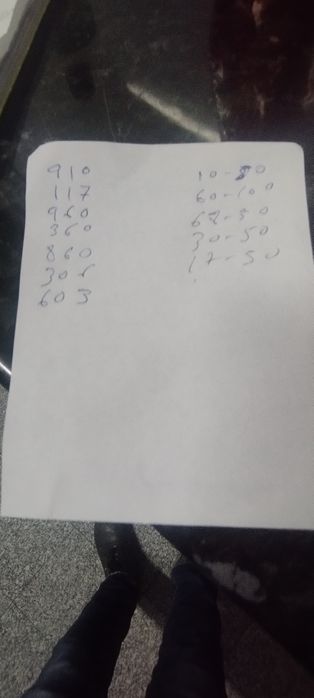 910
117
960
360
860
306
603
10-50
60-100
68-50
30-50
17-50